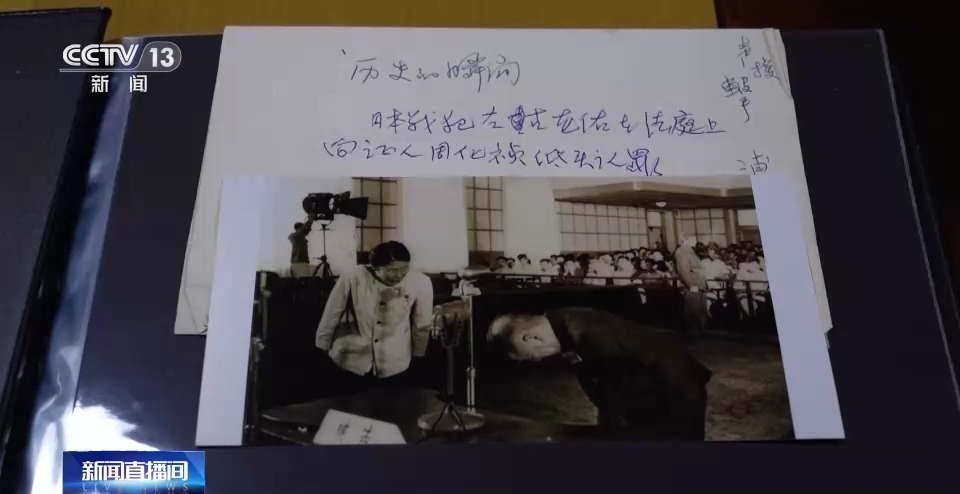 CCTV 13
新闻
历史的瞬间
日本战犯左古龙佑在法庭上
向证人周化祯低头认罪
新闻直播间
LIVE NEWS